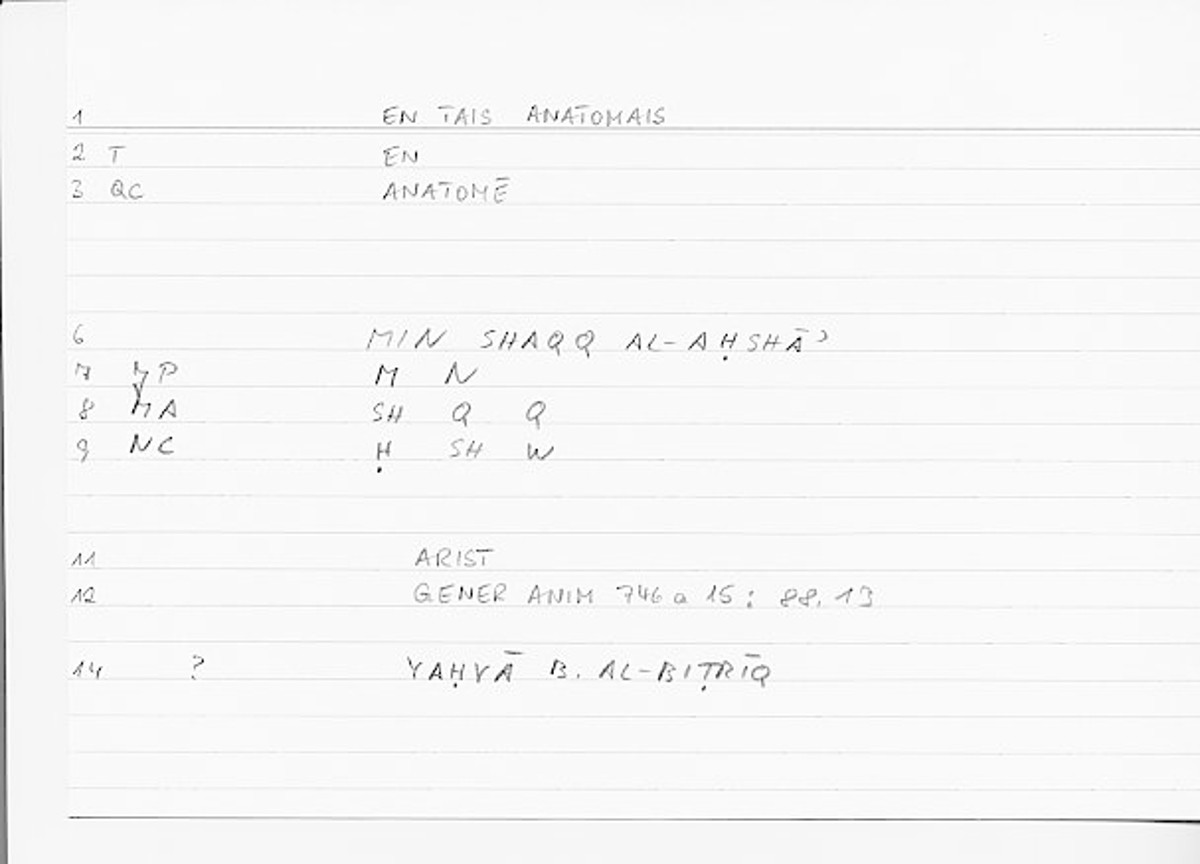 1 EN TAIS ANATOMAIS
2 T EN
3 QC ANATOMĒ
6 MIN SHAQQ AL-AḤSHĀʾ
7 MP M N
8 MA SH Q Q
9 NC Ḥ SH W
11 ARIST
12 GENER ANIM 746 a 15 ; 88, 13
14 ? YAḤYĀ B. AL-BIṬRĪQ